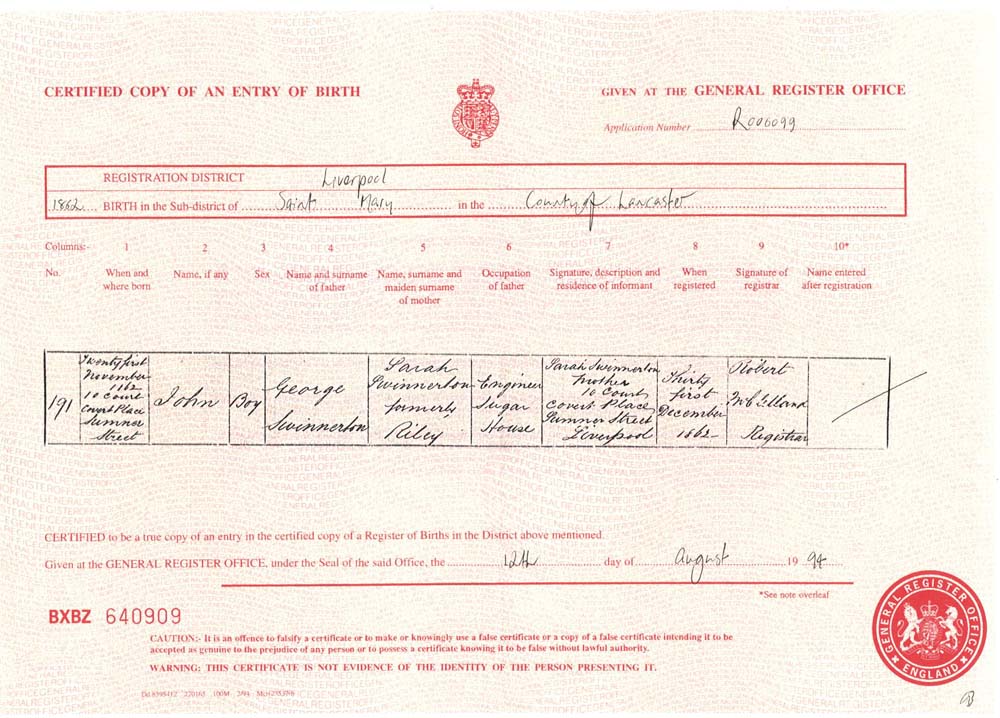 CERTIFIED COPY OF AN ENTRY OF BIRTH
GIVEN AT THE GENERAL REGISTER OFFICE
Application Number R006099
REGISTRATION DISTRICT Liverpool
1862 BIRTH in the Sub-district of Saint Mary in the County of Lancaster
Columns:- 1 2 3 4 5 6 7 8 9 10*
No. When and where born Name, if any Sex Name and surname of father Name, surname and maiden surname of mother Occupation of father Signature, description and residence of informant When registered Signature of registrar Name entered after registration
191
Twenty first
November
1862
10 Court
Covert Place
Sumner
Street
John
Boy
George
Swinnerton
Sarah
Swinnerton
formerly
Riley
Engineer
Sugar
House
Sarah Swinnerton
mother
10 Court
Covert Place
Sumner Street
Liverpool
Thirty
first
December
1862
Robert
Registrar
CERTIFIED to be a true copy of an entry in the certified copy of a Register of Births in the District above mentioned.
Given at the GENERAL REGISTER OFFICE, under the Seal of the said Office, the 12th day of August 19 94
*See note overleaf
BXBZ 640909
CAUTION:- It is an offence to falsify a certificate or to make or knowingly use a false certificate or a copy of a false certificate intending it to be
accepted as genuine to the prejudice of any person or to possess a certificate knowing it to be false without lawful authority.
WARNING: THIS CERTIFICATE IS NOT EVIDENCE OF THE IDENTITY OF THE PERSON PRESENTING IT.
GENERAL REGISTER OFFICE
ENGLAND